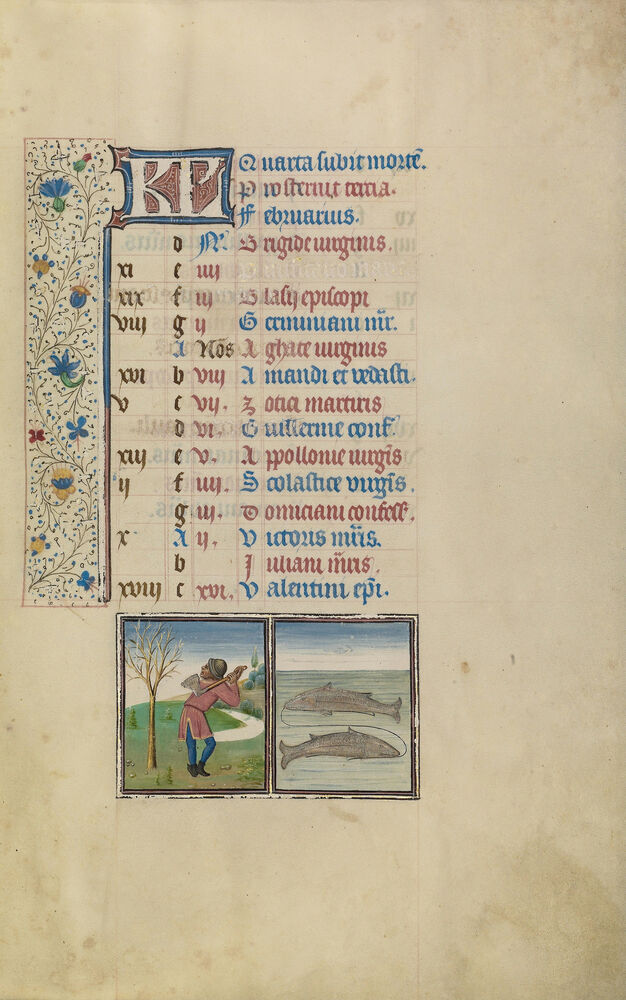 KL Quarta subit morte͂.
Prosternit tercia.
Februarius.
d N. Brigide uirginis.
xi e iiii
xix f iii Blasij episcopi
viii g ii Geminiani mr̃.
A Nōs Aghate uirginis
xvi b viii Amandi et vedasti.
v c vii. Zotici martiris
d vi. Guillermi conf.
xiii e v. Appollonie uirgĩs
ii f iiii. Scolastice virgĩs.
g iii. Domiciani confess̃.
x A ii. Victoris mr̃is.
b Juliani mr̃is.
xviii c xvi. Valentini ep̃i.